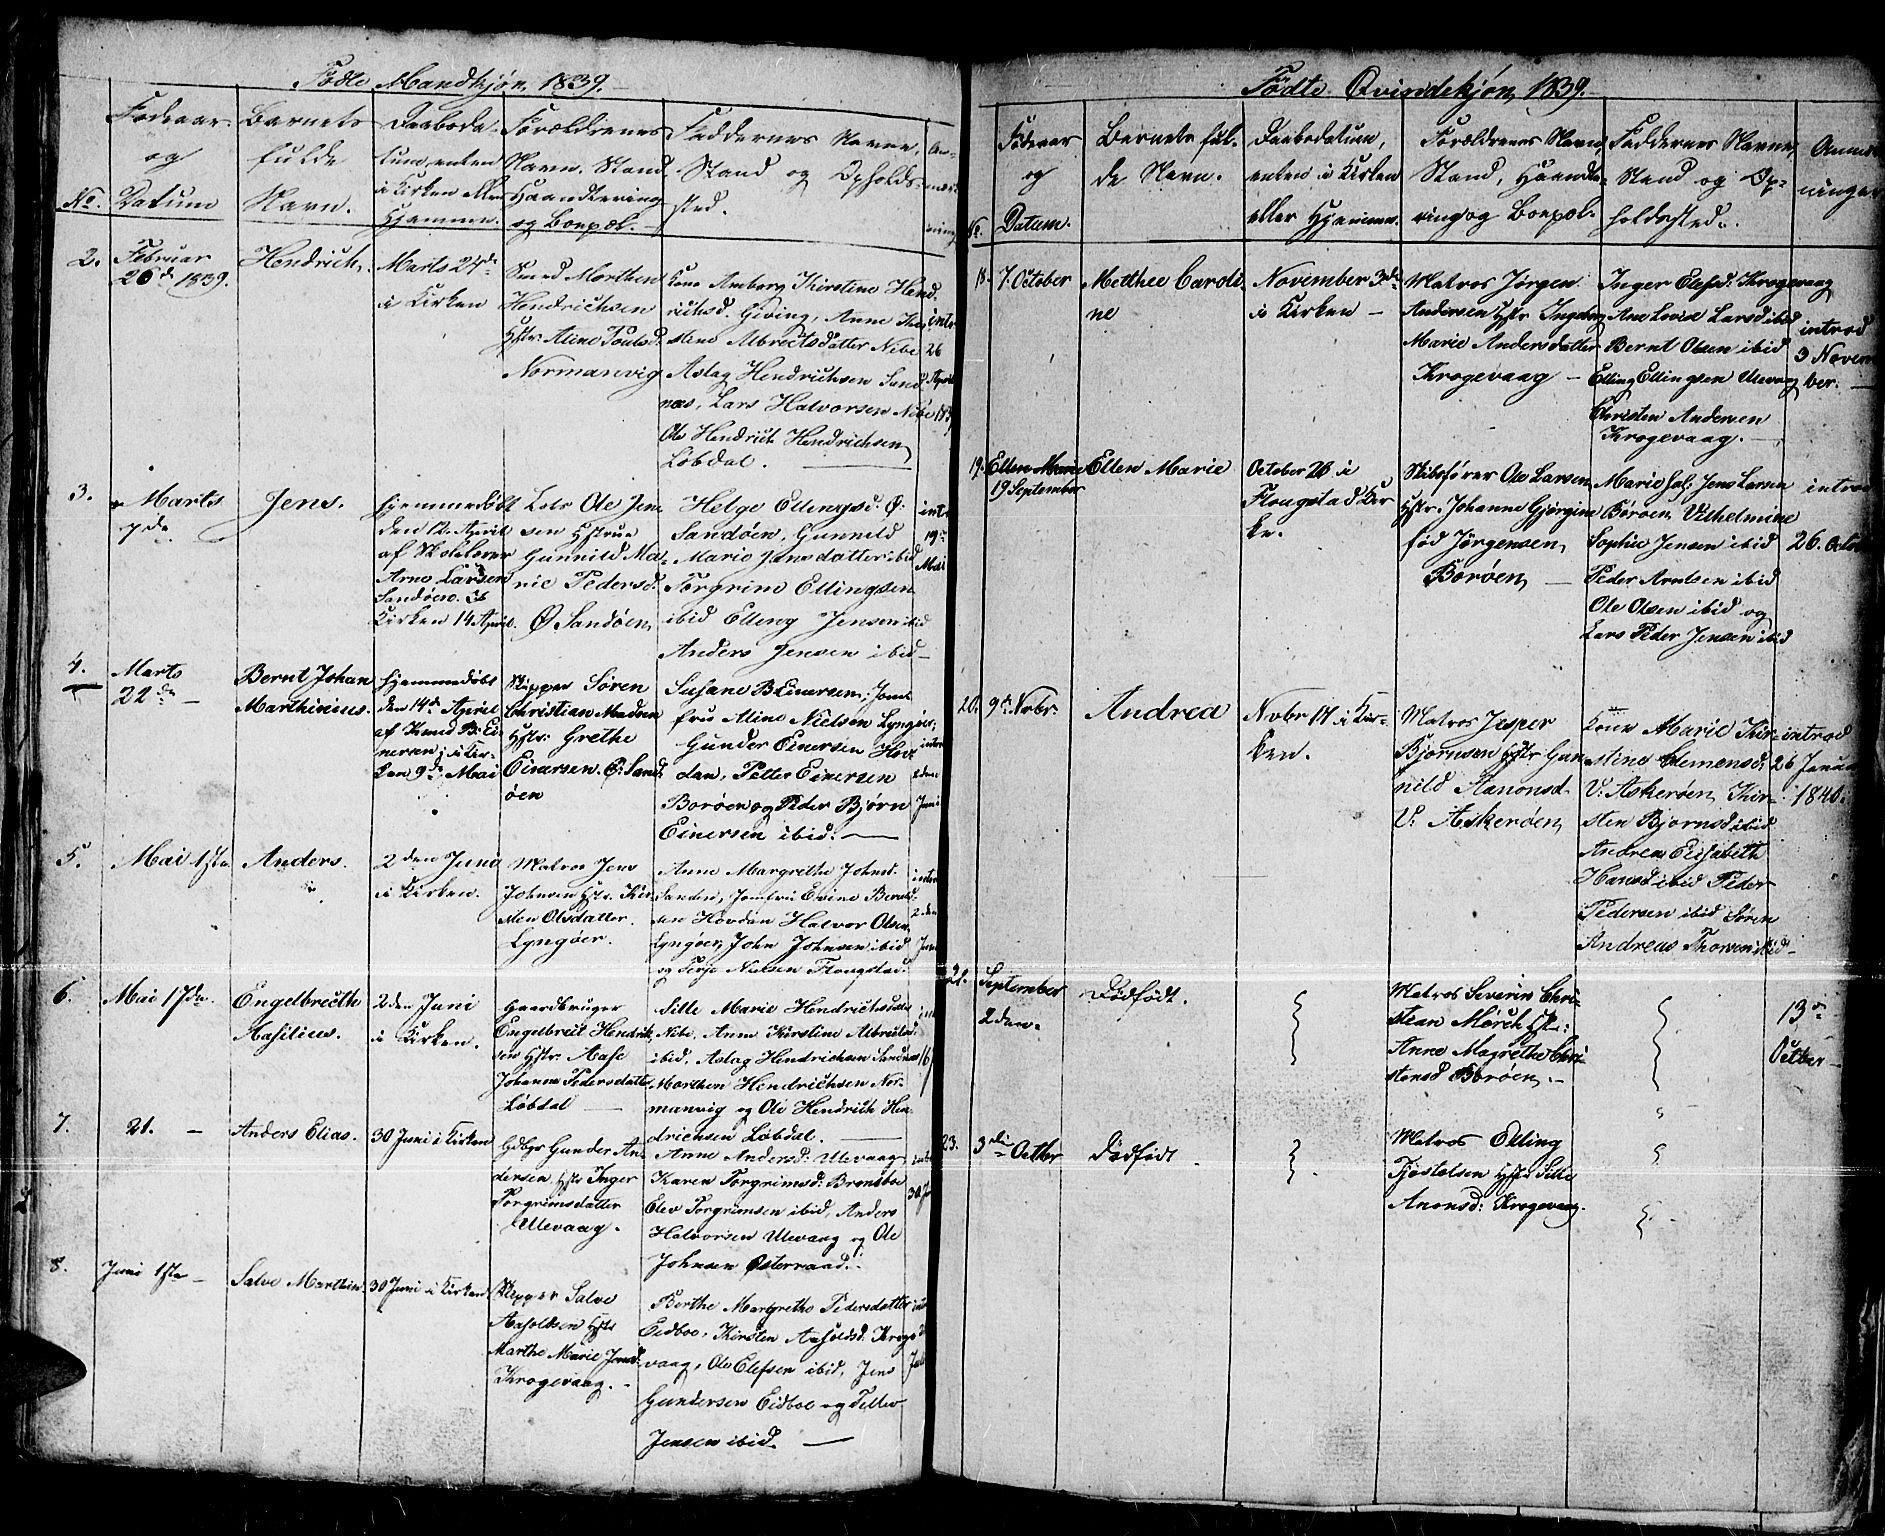 Fødte Mandkjøn, 1839.
No.
Fødeaar og Datum
Barnets fulde Navn.
Daabsdatum, enten i Kirken eller Hjemmen.
Forældrenes Navn, Stand, Haandtering og Boepæl.
Faddernes Navne, Stand og Opholdssted.
2.
Februar
26de 1839.
Hendrich.
Marts 24de
i Kirken
Smed Morthen
Hendrichsen
Hstr: Aline Poulsd.
Normanvig
Kone Amborg Kirstine Hend-
richsd. Giving, Anne Kir-
stine Albrectsdatter Nibe
Aslag Hendrichsen Sand-
næs, Lars Halvorsen Nibe
Ole Hendrich Hendrichsen
Løbdal.
intr
26
April
1839
3.
Marts
7de
Jens.
Hjemmedøbt
den 12. April
af Skolelærer
Arne Larsen
Sandøen. I
Kirken 14 April.
Lods Ole Jen-
sen Hstrue
Gunnild Ma-
rie Pedersd.
Ø Sandøen
Helge Ellengsd: Ø.
Sandøen, Gunnild
Marie Jensdatter ibid
Torgrim Ellingsen
ibid Elleng Jensen ibid
Anders Jensen ibid
intr
19de
Mai
4.
Marts
22de
Bernt Johan
Marthinius.
Hjemmedøbt
den 14de April
af Knud B. Ei-
nersen; i Kir-
ken 9de Mai
Skipper Søren
Christian Madsen
Hstr: Grethe
Einersen. Ø: Sand-
øen
Susane B Einersen; Jom-
fru Aline Nielsen Lyngøer,
Gunder Einersen Hov-
dan, Petter Einersen
Borøen og Peder Bjørn
Einersen ibid.
intro
2den
Juni
5.
Mai 1ste
Anders.
2den Juni
i Kirken.
Matros Jens
Johnsen Hstr. Kir-
sten Olsdatter.
Lyngøer.
Anne Margrethe Johnsd.
Sanden, Jomfru Evine Bernt-
sen Hovdan Halvor Olsen
Lyngøer, John Johnsen ibid
og Terje Nielsen Flougstad.
intro
2den
Juni
6.
Mai 17de
Engelbrecth
Aasilius.
2den Juni
i Kirken.
Gaardbruger
Engelbret Hendrik-
sen Hstr: Aase
Johanne Pedersdatter
Løbdal
Sille Marie Hendrichsdatter
Nibe, Anne Kirstine Albretsd.
ibid, Aslag Hendrichsen Sandnæs
Morthen Hendrichsen Nor-
manvig og Ole Hendrich Hen-
drichsen Løbdal.
7.
21. —
Anders Elias.
30 Juni i Kirken
Gdbgr Gunder An-
dersen Hstr Inger
Torgrimsdatter
Ullevaag.
Anne Andersd: Ulevaag
Karen Torgrimsd: Brensboe
Elev Torgrimsen ibid, Anders
Halvorsen Ulevaag og Ole
Johnsen Østeraad.
8.
Juni 1ste
Salve Marthin
30 Juni i Kirken
Skipper Salve
Aasolksen Hstr
Marthe Marie Jensd.
Krogevaag.
Berthe Margrethe Pedersdatter
Eidboe, Kirsten Aasoldsd. Kroge-
vaag, Ole Elefsen ibid, Jens
Gundersen Eidboe og Petter
Jensen ibid.
Fødte Qvindekjøn, 1839.
No.
Fødeaar og Datum.
Barnets ful-
de Navn.
Daabsdatum,
enten i Kirken
eller Hjemmen.
Forældrenes Navn,
Stand, Haandte-
ring og Boepæl.
Faddernes Navne,
Stand og Op-
holdssted.
Anmærk-
ninger
18.
7. October
Metthee Caroli-
ne
November 3de
i Kirken —
Matros Jørgen
Andersen Hstr Ingeborg
Marie Andersdatter
Krogevaag —
Inger Elefsd: Krogevaag
Ane Lovise Larsd ibid
Bernt Olsen ibid
Elling Ellingsen Ulevaag
Christen Andersen
Krogevaag.
introd
3 Novem-
ber.
19.
Ellen Marie
19 September
Ellen Marie
October 26 i
Flougstad Kir-
ke.
Skibsfører Ole Larsen
Hstr. Johanne Gjørgine
fød Jørgensen,
Borøen
Marie Jens Larsen
Borøen, Vilhelmine
Sophie Jensen ibid
Peder Arntsen ibid
Ole Olsen ibid og
Lars Peder Jensen ibid
introd
26. October
20.
9de Novbr.
Andrea
Novbr 17 i Kir-
ken.
Matros Jesper
Bjørnsen Hstr Gun-
nild Aanonsd
V: Askerøen
Kone Marie Kir-
stine Clemensd:
V: Askerøen, Kir-
sten Bjørnsd ibid
Andrea Elisabeth
Hansd ibid Peder
Pedersen ibid Søren
Andreas Thorsen ibid
introd
26 Januar
1840.
September
2den.
Dødfødt.
Matros Severin Chri-
stian Mørch Hstr:
Anne Magrethe Chri-
stensd Borøen.
13de
Octber
23.
3die Octber
Dødfødt
Matros Elling
Tjøstelsen Hstr Sille
Anonsd: Krogevaag.